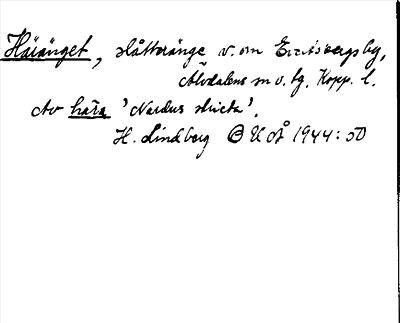 Haränget, slåtteränge v. om Evertsbergs by,
Älvdalens sn o. tg, Kopp. l.
Av hara 'Nardus stricta'.
H. Lindberg @ UoÅ 1944:50